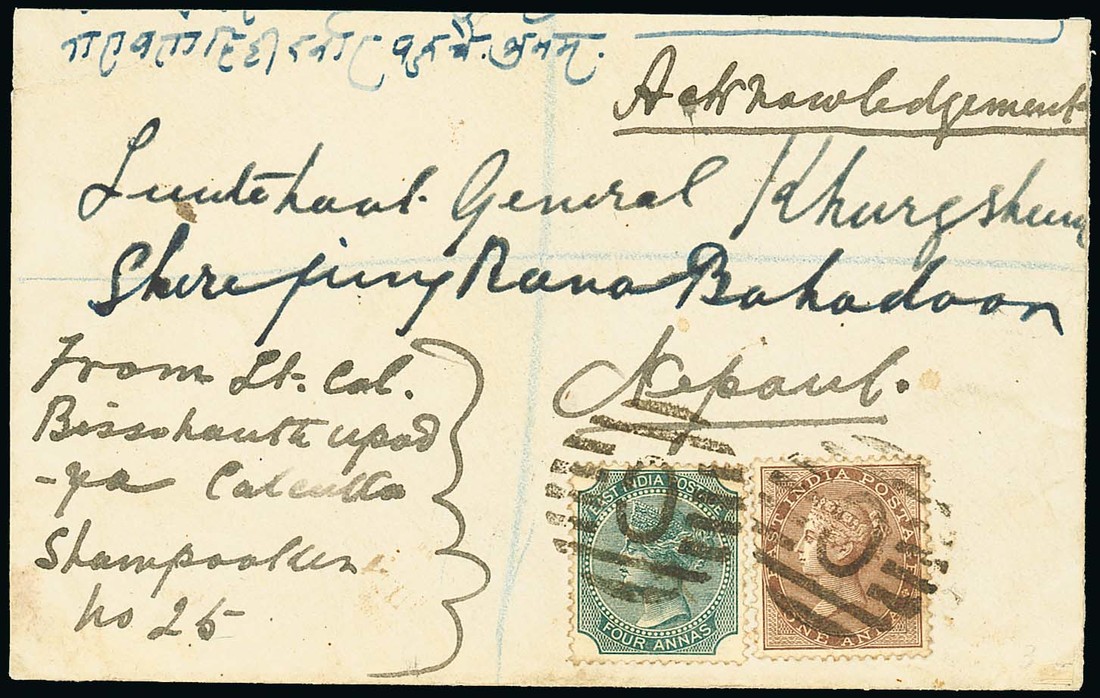 Acknowledgement
Lieutenant General Khurgsheng
Shere jung Rana Bahadoor
Nepaul.
From Lt. Col.
Bissohauth upad
-ya Calcutta
Shampooker
No 25
EAST INDIA POSTAGE
FOUR ANNAS
EAST INDIA POSTAGE
ONE ANNA